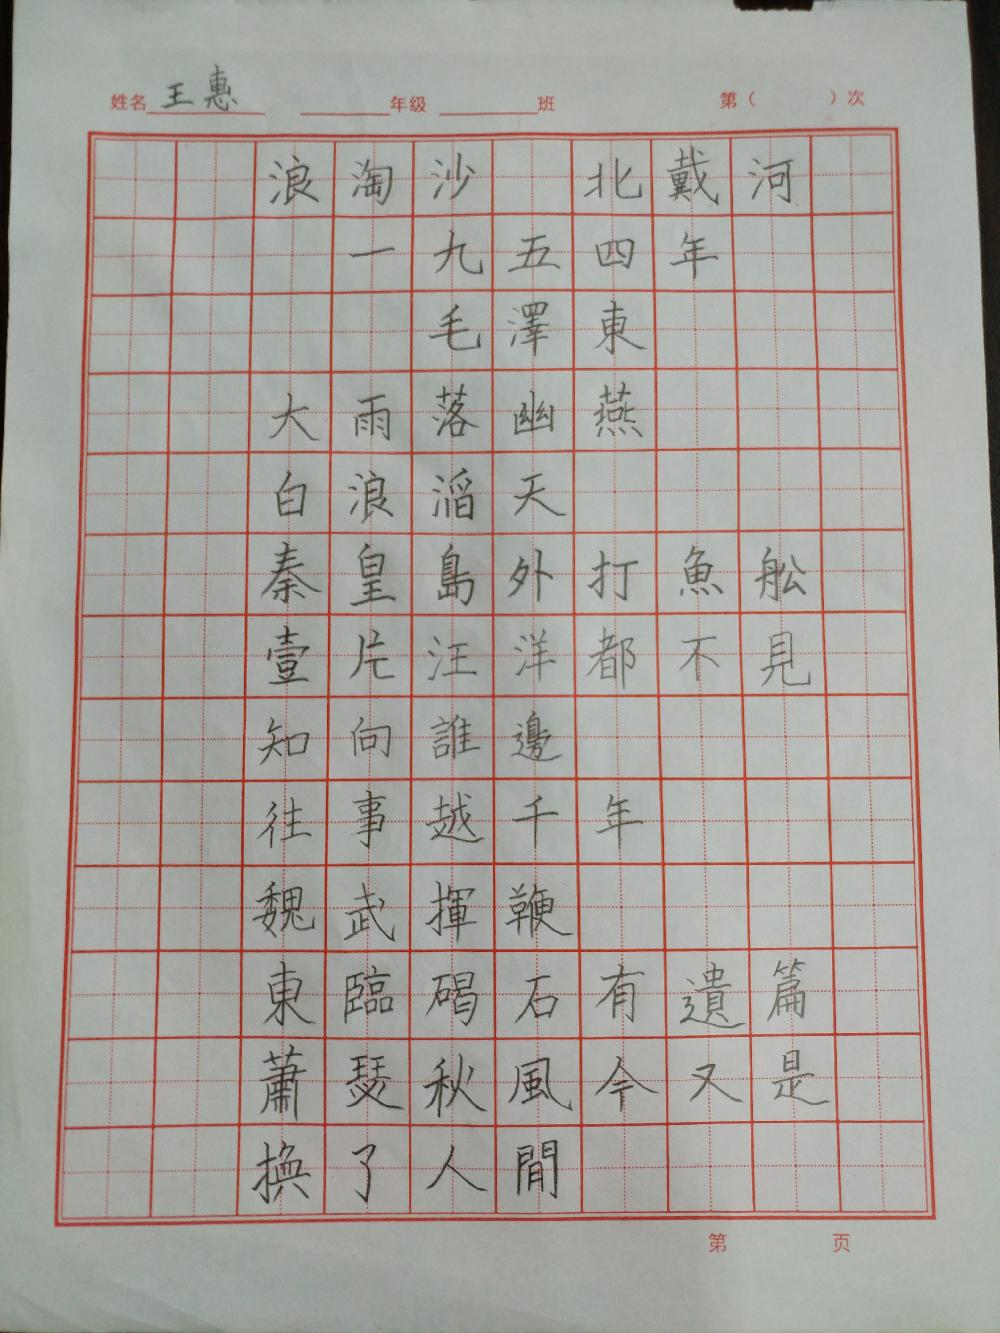 姓名 王惠 年级 班 第（ ）次
浪淘沙 北戴河
一九五四年
毛澤東
大雨落幽燕
白浪滔天
秦皇島外打魚舩
壹片汪洋都不見
知向誰邊
往事越千年
魏武揮鞭
東臨碣石有遺篇
蕭瑟秋風今又是
換了人間
第 页